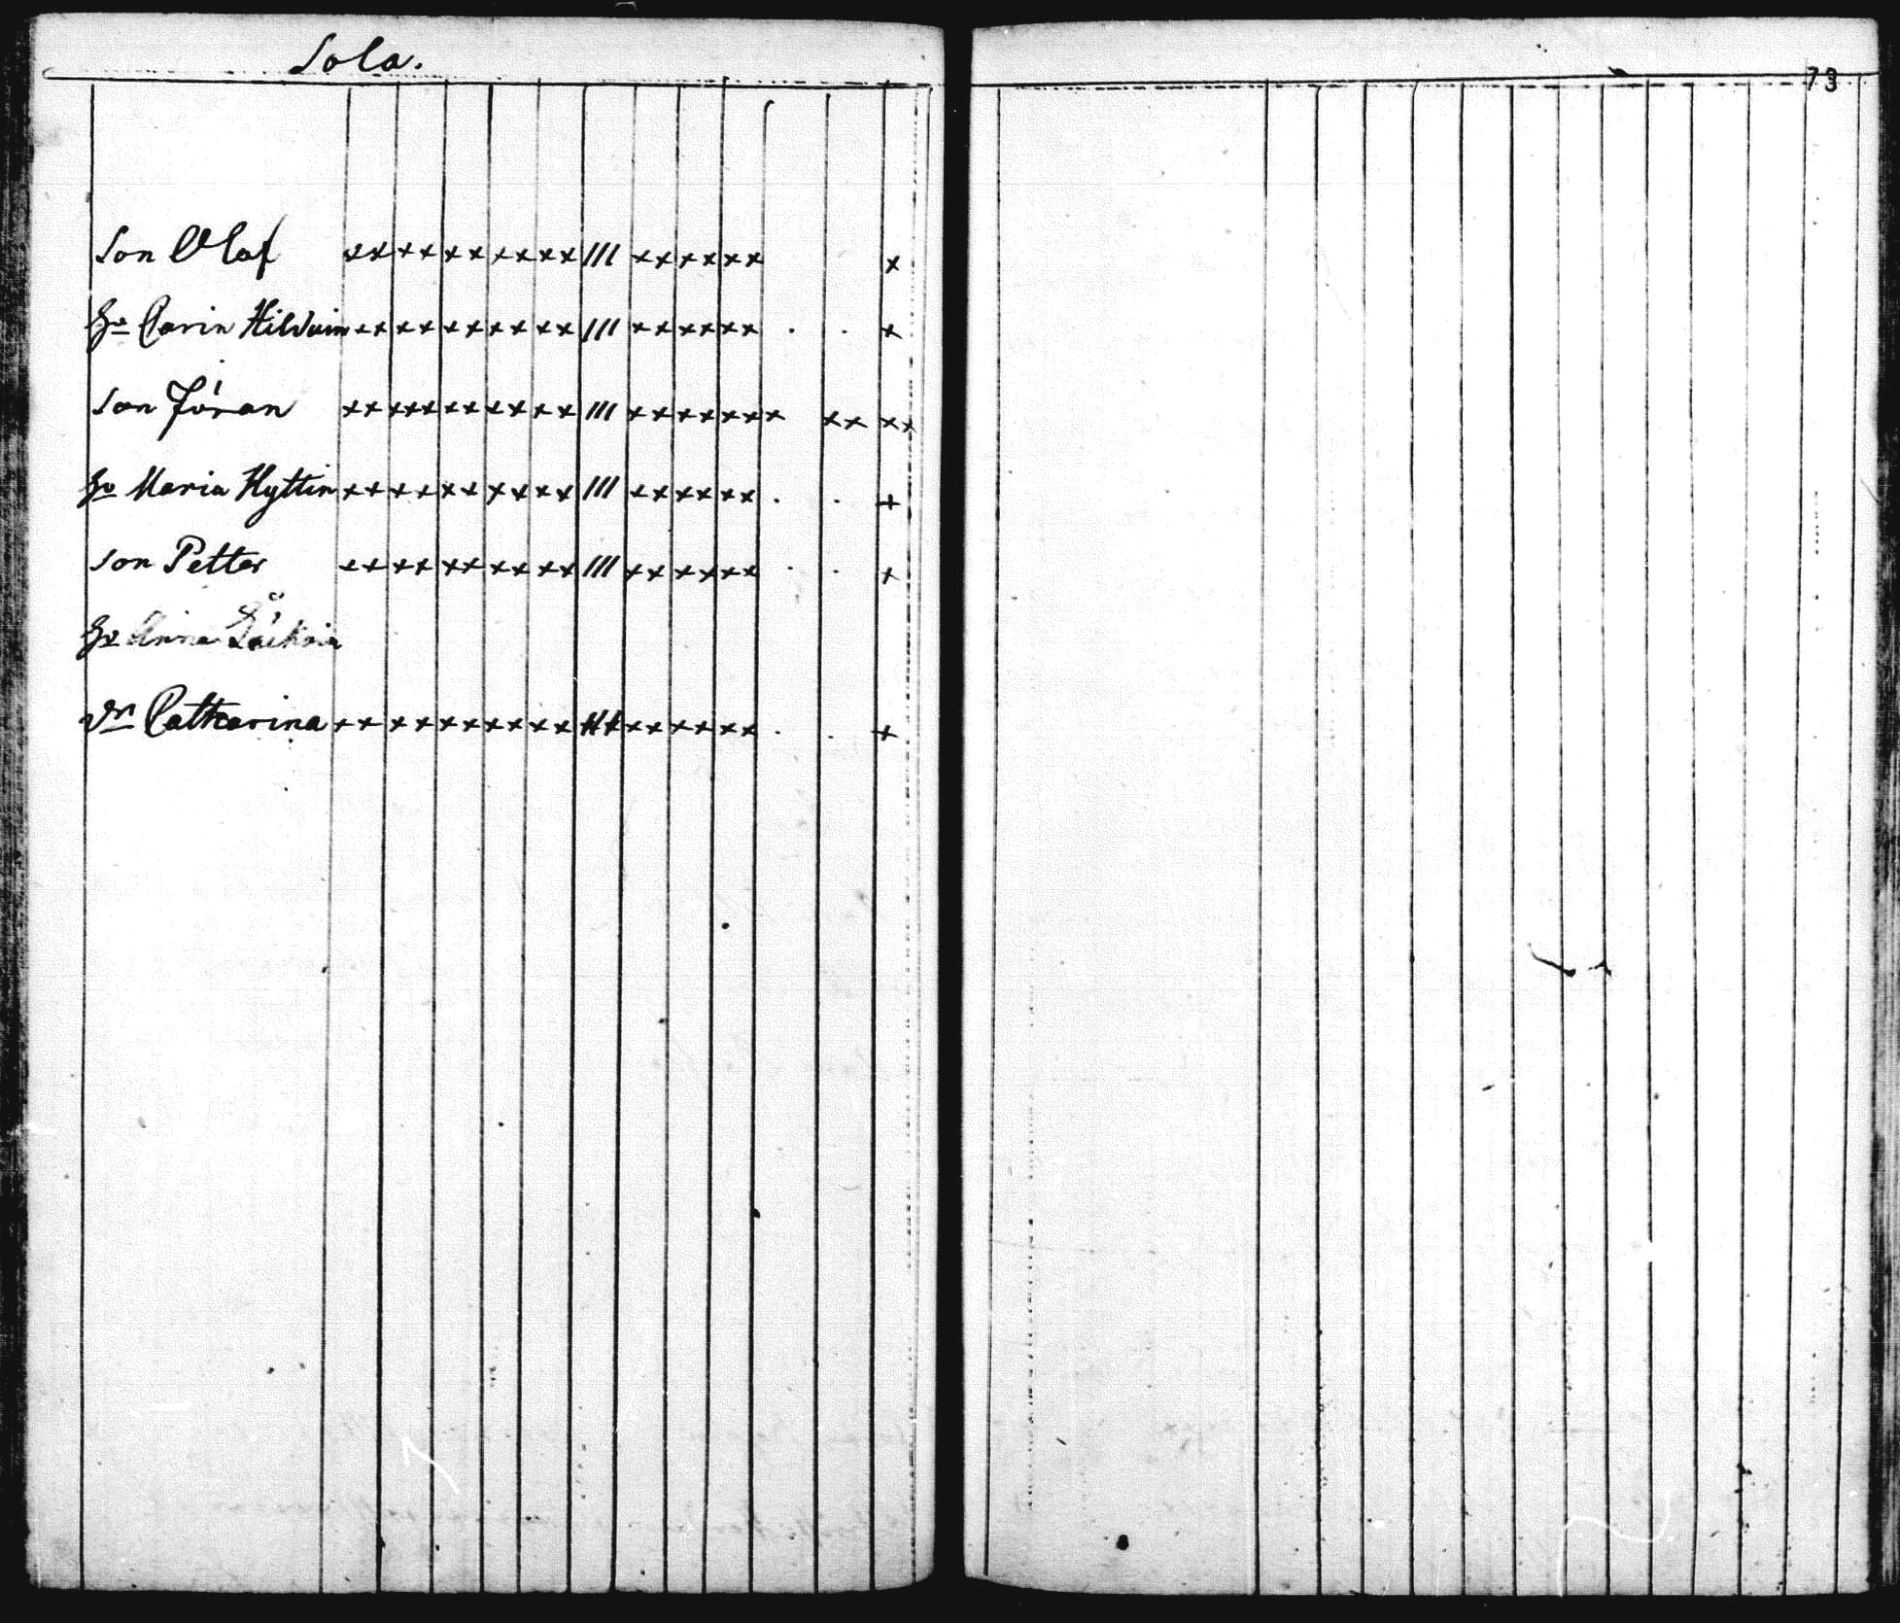 Sola.
73
Son Olaf xx xx xx xx xx /// xx xx xx x
Hu Carin Hilduin xx xx xx xx xx /// xx xx xx . . x
Son Jöran xx xxx xx xx xx /// xx xx xxx xx xx
Hu Maria Hyttin xx xx xx xx xx /// xx xx xx . . x
Son Petter xx xx xx xx xx /// xx xx xx . . x
Hu Anna
Dr Catharina xx xx xx xx xx xx xx xx . . x